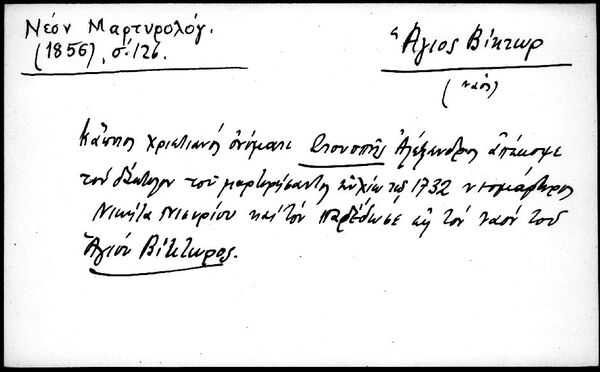 Νέον Μαρτυρολόγ.
(1856), σ. 126.
Ἅγιος Βίκτωρ
(ναός)
Κάποιος χριστιανός ὀνόματι Ἀλέξανδρος ἀπέκοψε
τον δάκτυλον τοῦ μαρτυρήσαντος ἐν Χίῳ τῷ 1732 νεομάρτυρος
Νικήτα Νισυρίου καί τόν παρέδωσε εἰς τόν ναόν τοῦ
Ἁγίου Βίκτωρος.